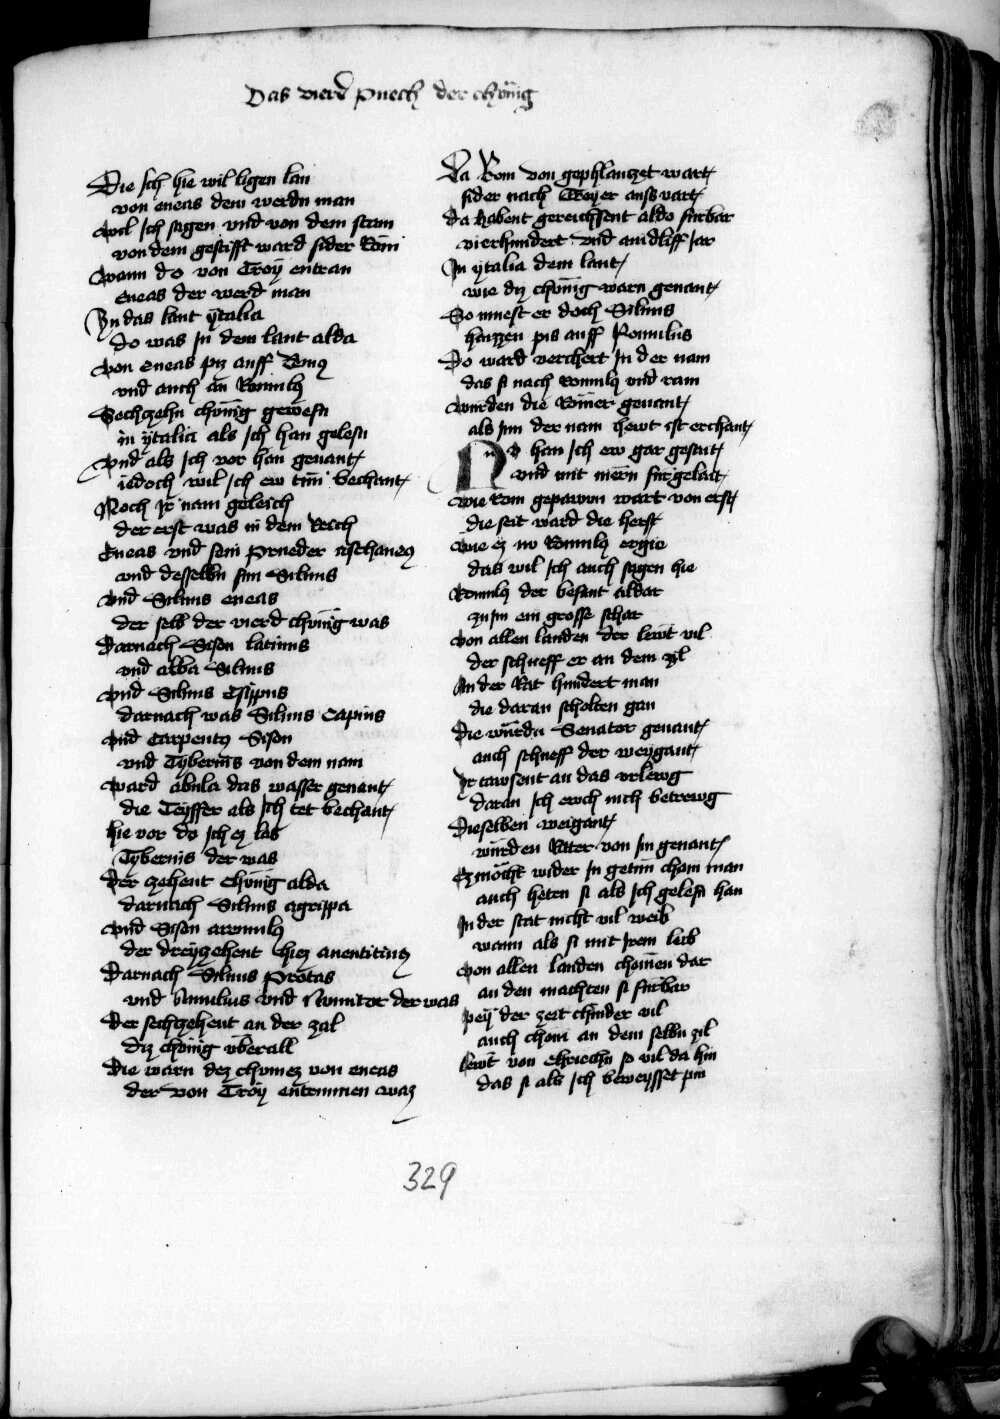 Das vierd puech der chönig
Die ich hie wil ligen lan
von eneas dem werdn man
Wil ich sagen vnd von dem stam
von dem gestifft ward sider Röm
Wann do von Troÿ entran
eneas der werd man
Yn das lant ÿtalia
do was in dem lant alda
Von eneas piz auff
vnd auch an
Sechczehn chönig gewesn
in ÿtalia als ich han gelesn
Vnd als ich vor han genant
iedoch wil ich ew tün bechant
Noch ir nam geleich
der erst was in dem Reich
Eneas vnd sein prueder
vnd desselbn sun Siluius
Vnd Siluius eneas
der selb der vierd chönig was
Darnach Sison latinus
vnd alba Siluius
Vnd Siluius Esippus
darnach was Siluius Capius
Vnd Carpentus Sison
vnd Tyberius von dem nam
Ward abula das wasser genant
die Teyffer als ich tet bechant
hie vor do ich ez las
Tybernis der was
Der zehent chönig alda
darnach Siluius agrippa
Vnd Sison
der dreyzehent hiez
Darnach Siluius Protas
vnd Amulius vnd Numitor der was
Der sechczehent an der zal
diz chönig vberall
Die warn dez chomez von eneas
der von Troÿ entrunnen waz
Da Rom von gephlanczet wart
sider nach Troyer ausvart
Da habent gereichsent aldo furbar
vierhundert vnd aindliff jar
In ÿtalia dem lant
wie diz chönig warn genant
So muest er doch Siluius
haizzen pis auff Romulus
Do ward verchert in der nam
das si nach vnd ram
Wurden die Römer genant
als im der nam hewt ist erchant
Nv han ich ew gar gesait
vnd mit mern furgelait
Wie Rom gepawn wart von erst
die seit ward die herst
Wie ez nv ergie
das wil ich auch sagen hie
der besant aldar
zu im ein grosse schar
Von allen landen der lewt vil
der schueff er an dem zil
An der Rat hundert man
die daran scholten gan
Die würdn Senator genant
auch schueff der weygant
Ir tawsent an das vrlewg
daran ich ewch nich betrewg
Dieselben weigant
würden Ritter von im genant
Ez möcht wider in getün cham man
auch heten si als ich gelesn han
In der stat nicht vil weib
wann als si mit irem leib
Von allen landen chomen dar
an den machten si furbar
Peÿ der zeit chinder vil
auch chom an dem selbn zil
lewt von chriechn so vil da hin
das si als ich beweysset pin
329